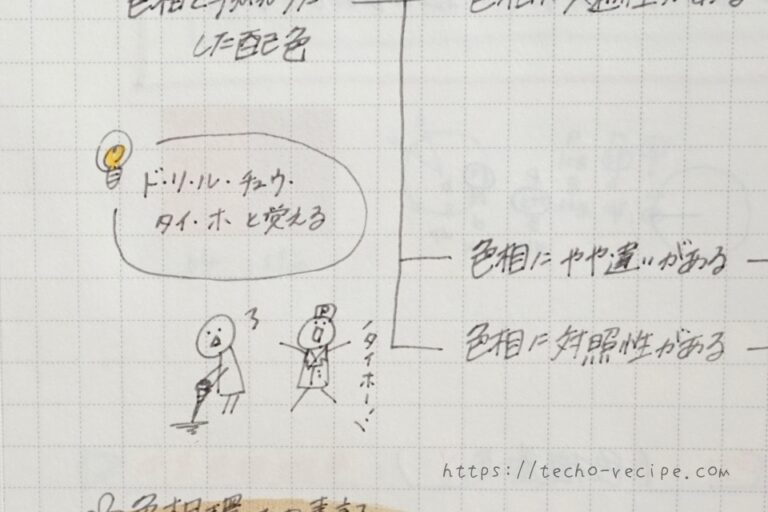 した配色
ド・リ・ル・チュウ・
タイ・ホ と覚える
タイホー!!
色相にやや違いがある
色相に対照性がある
https://techo-recipe.com